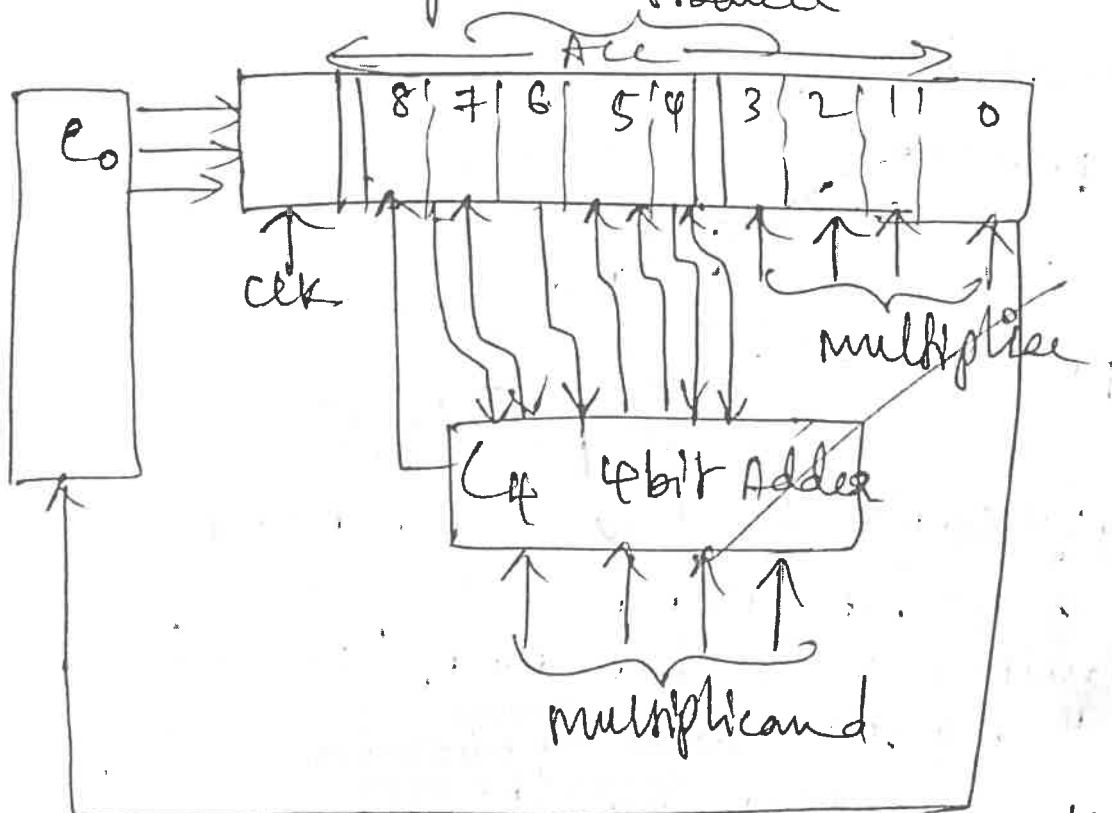 Product
Acc
8 7 6 5 4 3 2 1 0
clk
multiplier
C4 4bit Adder
multiplicand.